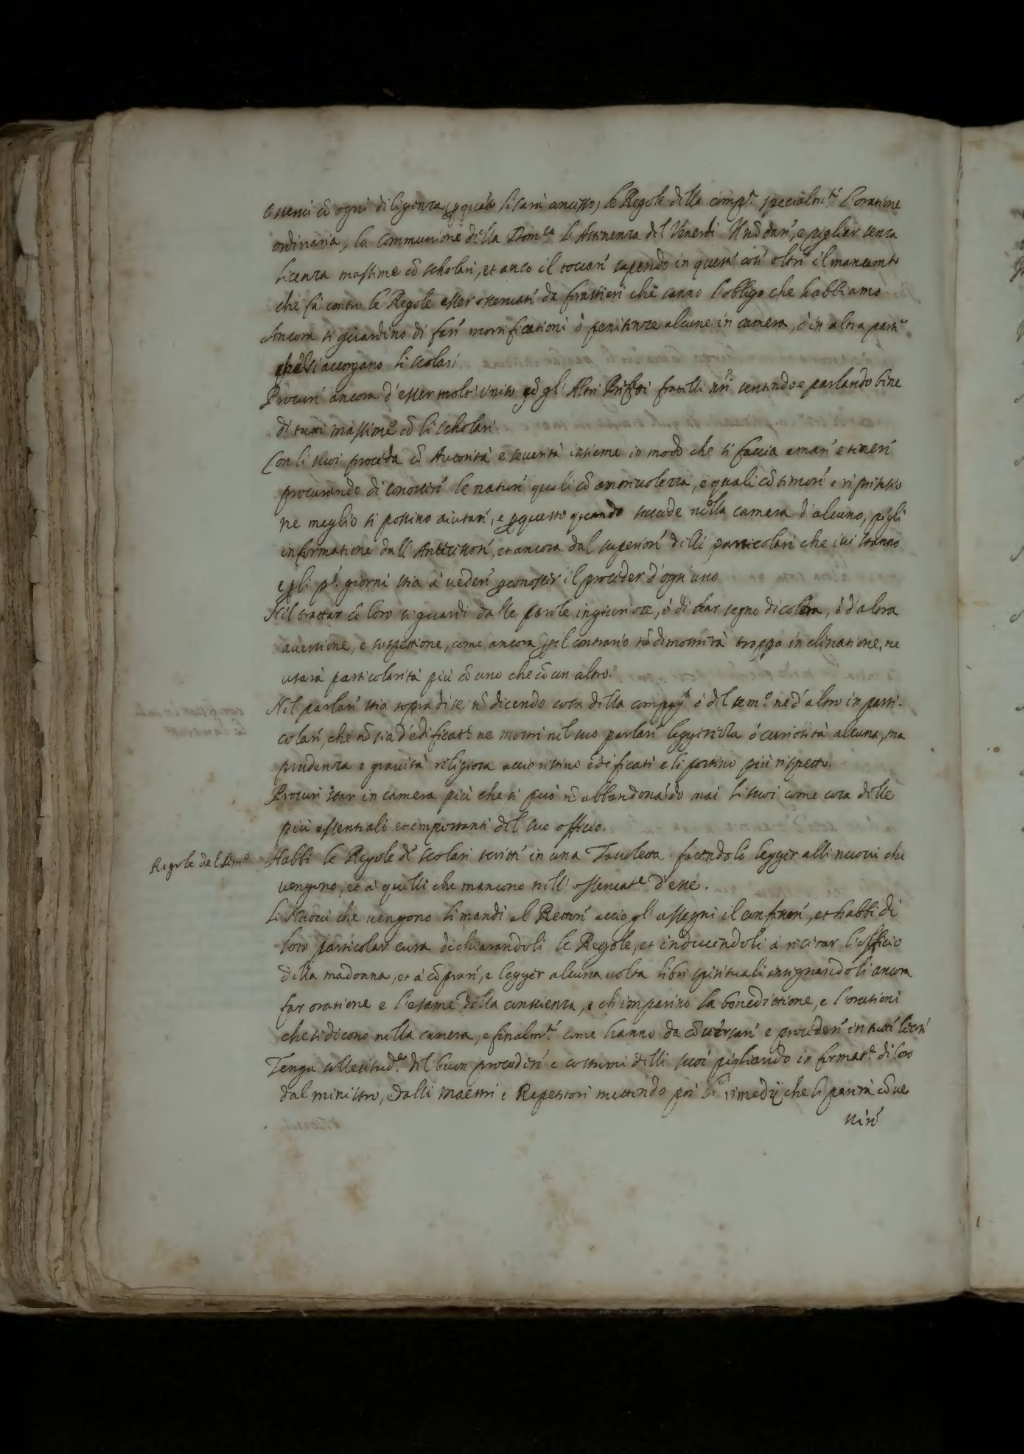 Osservi cō ogni diligenza, p quāto li sarà concesso, le Regole della comp.ª specialm.te l'oratione
ordinaria, la Communione della Dom.ca l'Astinenza del Venerdi Il nō dar, e pigliar senza
licenza massime cō scholari, et anco il toccarsi sapendo in questi casi oltr' il mancamto
che fà contro le Regole esser osservati da frastieri che sanno l'obligo che habbiamo
Ancora si guardino di far mortificationi ò penitenze alcune in camera, ò in altra parte
che se accorgano li scolari
Procuri ancora d'esser molto unito cō gl' Altri Prefetti fratelli nri sentendo e parlando bene
di tutti massime cō li scholari.
Con li suoi proceda cō Autorità e severità insieme in modo che si faccia amar' e temer'
procurando di conoscer' le nature quali cō amorevolezza, e quali cō timor' e
ne meglio si possino aiutar', e p questo quando succede nella camera d'alcuno, pigli
informatione dall' Antecessor', et ancora dal superior' delli particolari che ivi stanno
e gli p.i giorni stia à veder' p conoscer il proceder d'ogn'uno
Nel trattar cō loro si guardi dalle parole ingiuriose, ò di dar segno di colera, ò d'alcra
aversione, e suspitione, come ancora p il contrario nō dimostrarà troppa inclinatione, ne
usarà particolarità più cō uno che cō un altro.
Nel parlar' stia sopra di se nō dicendo cosa della compag.ª ò del sem.º ne d'altro in parti-
colar', che nō sia d'edificat.e ne mostri nel suo parlar' leggierezza ò curiosità alcuna, ma
prudenza e gravità religiosa accio restino edificati e li portino più rispetto.
Procuri star in camera più che si può nō abbandonādo mai li suoi come cosa delle
più essentiali et importanti del suo officio.
Regole del Sem.º
Habbi le Regole de' scolari scritte in una Tavoletta facendole legger alli nuovi che
vengono, et à quelli che mancono nell' osservat.e d'esse.
Li Nuovi che vengono li mandi al Rettor' acciò gl' assegni il confessor', et habbi di
loro particolar cura dechiarandoli le Regole, et inducendoli à recitar l'officio
della madonna, et à cōprar', e legger alcuna volta libri spirituali insegnandoli ancora
far oratione e l'esame della conscienza, e che imparino la benedictione, e l'orationi
che si dicono nella camera, e finalm.te come hanno da cōversar' e proceder' in tutti
Tenga sollecitud.e del buon proceder' e costumi delli suoi pigliando informat.e di loro
dal ministro, dalli maestri e Repetitori mettendo poi li rimedij che li parerà cōve
nire